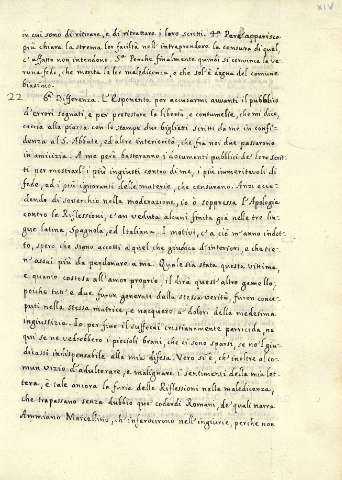 XIV
in cui sono di ritirare, e di ritrattare i loro scritti. 4.° Parè apparisca
più chiara la strema lor facilità nell'intraprendere la censura di quel,
c'affatto non intendono. 5.° Perche finalmente quindi si convinca ve-
runa fede, che merita la lor maledicenza, e che sol è degna del comune
biasimo.
22 6.a Differenza. L'Esponente per accusarmi avvanti il pubblico
d'errori sognati, e per protestare la libertà, e contumelie, che mi dice,
caccia alla piazza con le stampe due biglietti scritti da me in confi-
denza al S. Abbate, ed altre interiorità, che fra noi due passarono
in amicizia. A me però basteranno i documenti pubblici de' loro scrit-
ti per mostrarli i più ingiusti contro di me, i più immeritevoli di
fede, ed i più ignoranti delle materie, che censurano. Anzi ecce-
dendo di soverchio nella moderazione, io ò soppressa l'Apologia
contro le Riflessioni, c'an veduta alcuni finita già nelle tre lin-
gue latina, Spagnola, ed Italiana. I motivi, c'a ciò m'anno indot-
to, spero che siano accetti a quel che giudica d'interiori, e ha tie-
n'assai più da perdonare a me. Quale sia stata questa vittima,
e quanto costosa all'amor proprio, il dirà quest'altro gemello,
poiche tutt'e due furon generati dalla stessa verità, furon conce-
puti nella stessa matrice, e nacquero a' dolori della medesima
ingiustizia. Io per fine il soffocai cristianamente parricida, ne
qui se ne vedrebbero i piccioli brani, che ci sono sparsi, se no'l giu-
dicassi indispensabile alla mia difesa. Vero si è, ch'inoltre al co-
mun vizio d'adulterare, e malignare i sentimenti della mia let-
tera, è tale ancora la furia delle Riflessioni nella maledicenza,
che trapassano senza dubbio que' codardi Romani, de' quali narra
Ammiano Marcellino, ch'inferocirono nell'ingiurie, perche non